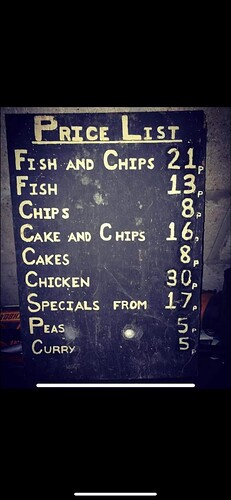 PRICE LIST
FISH AND CHIPS 21P
FISH 13P
CHIPS 8P
CAKE AND CHIPS 16P
CAKES 8P
CHICKEN 30P
SPECIALS FROM 17P
PEAS 5P
CURRY 5P